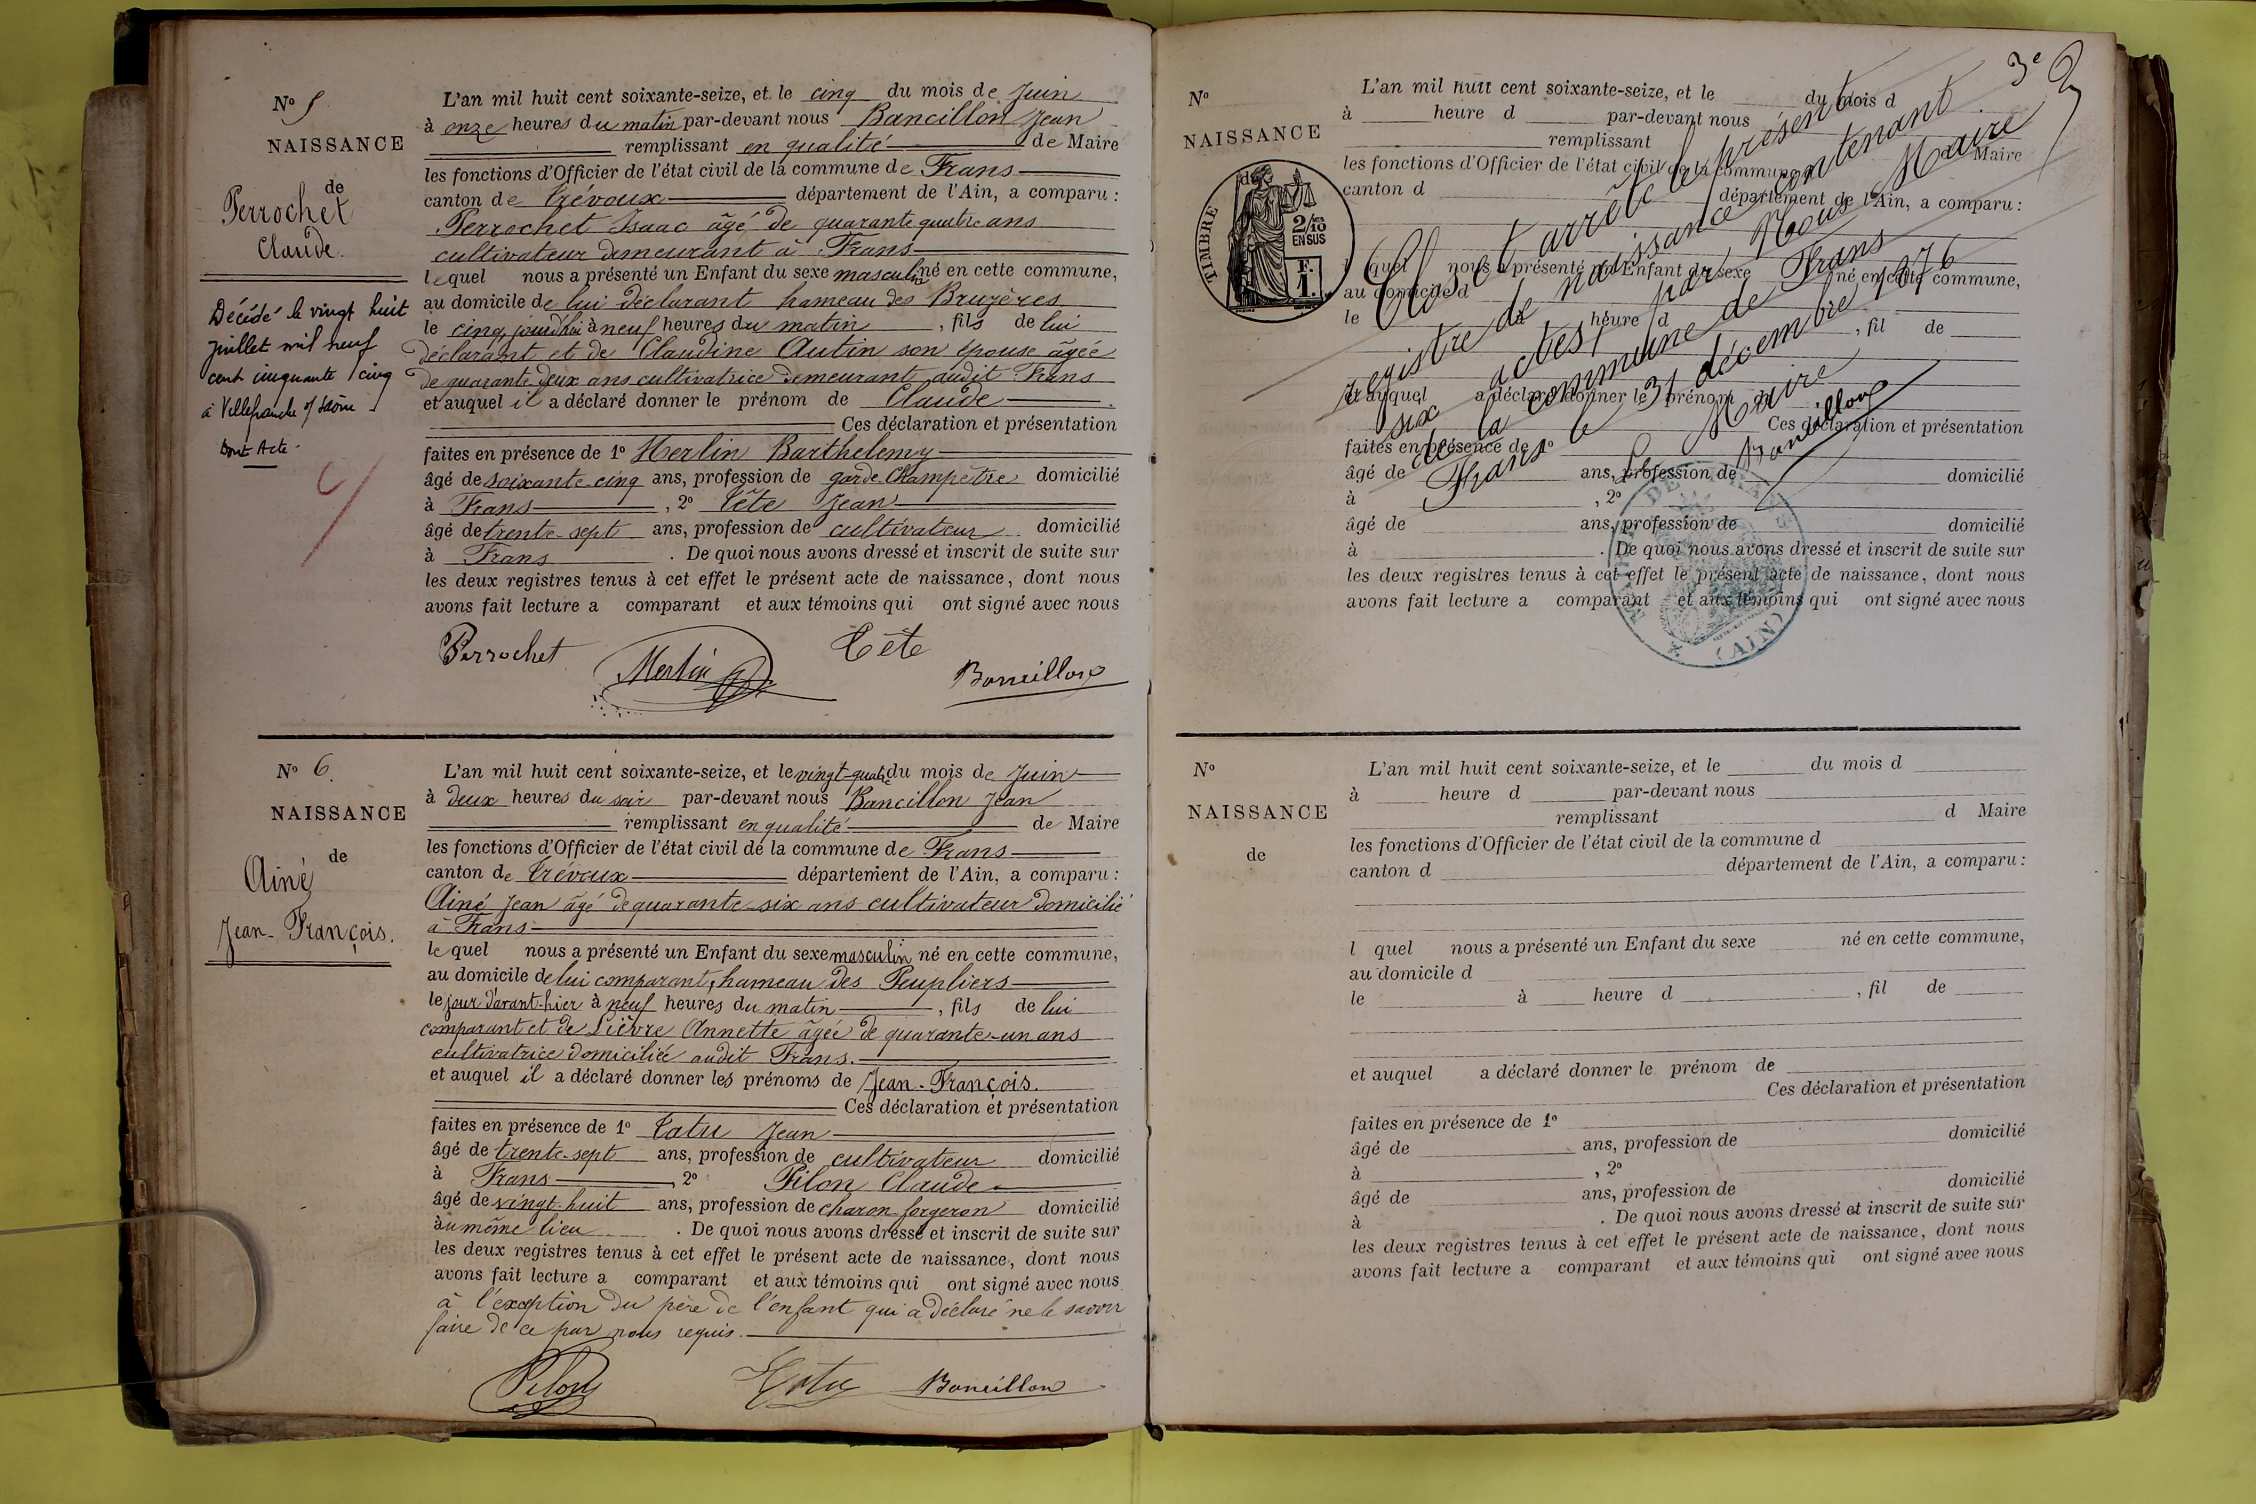 N° 5
NAISSANCE
de
Perrochet
Claude.
Décédé le vingt huit
juillet mil neuf
cent cinquante cinq
à Villefranche s/ Saône
Dont Acte.
L'an mil huit cent soixante-seize, et le cinq du mois de Juin
à onze heures du matin par-devant nous Bancillon Jean
remplissant en qualité de Maire
les fonctions d'Officier de l'état civil de la commune de Frans
canton de Trévoux département de l'Ain, a comparu :
Perrochet Isaac âgé de quarante quatre ans
cultivateur demeurant à Frans
lequel nous a présenté un Enfant du sexe masculin né en cette commune,
au domicile de lui déclarant hameau des Bruyères
le cinq, jourd'hui à neuf heures du matin , fils de lui
déclarant et de Claudine Autin son épouse âgée
de quarante deux ans cultivatrice demeurant audit Frans
et auquel il a déclaré donner le prénom de Claude
Ces déclaration et présentation
faites en présence de 1° Merlin Barthelemy
âgé de soixante cinq ans, profession de garde Champêtre domicilié
à Frans , 2° Tête Jean
âgé de trente-sept ans, profession de cultivateur domicilié
à Frans . De quoi nous avons dressé et inscrit de suite sur
les deux registres tenus à cet effet le présent acte de naissance, dont nous
avons fait lecture a comparant et aux témoins qui ont signé avec nous
Perrochet Merlin Tête Bancillon
N° 6.
NAISSANCE
de
Ainé
Jean-François.
L'an mil huit cent soixante-seize, et le vingt-quatre du mois de Juin
à deux heures du soir par-devant nous Bancillon Jean
remplissant en qualité de Maire
les fonctions d'Officier de l'état civil de la commune de Frans
canton de Trévoux département de l'Ain, a comparu :
Ainé Jean âgé de quarante-six ans cultivateur domicilié
à Frans
lequel nous a présenté un Enfant du sexe masculin né en cette commune,
au domicile de lui comparant, hameau des Peupliers
le jour d'avant-hier à neuf heures du matin , fils de lui
comparant et de Lièvre Annette âgée de quarante-un ans
cultivatrice domiciliée audit Frans.
et auquel il a déclaré donner les prénoms de Jean-François.
Ces déclaration et présentation
faites en présence de 1° Tatu Jean
âgé de trente-sept ans, profession de cultivateur domicilié
à Frans , 2° Pilon Claude
âgé de vingt-huit ans, profession de charon forgeron domicilié
au même lieu . De quoi nous avons dressé et inscrit de suite sur
les deux registres tenus à cet effet le présent acte de naissance, dont nous
avons fait lecture a comparant et aux témoins qui ont signé avec nous
à l'exception du père de l'enfant qui a déclaré ne le savoir
faire de ce par nous requis.
Pilon Tatu Bancillon
3e
N°
NAISSANCE
de
TIMBRE
2/10
EN SUS
F.
1.
L'an mil huit cent soixante-seize, et le du mois d
à heure d par-devant nous
remplissant d Maire
les fonctions d'Officier de l'état civil de la commune d
canton d département de l'Ain, a comparu :
l quel nous a présenté un Enfant du sexe né en cette commune,
au domicile d
le à heure d , fil de
et auquel a déclaré donner le prénom de
Ces déclaration et présentation
faites en présence de 1°
âgé de ans, profession de domicilié
à , 2°
âgé de ans, profession de domicilié
à . De quoi nous avons dressé et inscrit de suite sur
les deux registres tenus à cet effet le présent acte de naissance, dont nous
avons fait lecture a comparant et aux témoins qui ont signé avec nous
Clos et arrêté le présent
registre de naissance contenant
six actes, par Nous Maire
de la commune de Frans
Frans le 31 décembre 1876
Le Maire
Bancillon
MAIRIE DE FRANS
(AIN)
N°
NAISSANCE
de
L'an mil huit cent soixante-seize, et le du mois d
à heure d par-devant nous
remplissant d Maire
les fonctions d'Officier de l'état civil de la commune d
canton d département de l'Ain, a comparu :
l quel nous a présenté un Enfant du sexe né en cette commune,
au domicile d
le à heure d , fil de
et auquel a déclaré donner le prénom de
Ces déclaration et présentation
faites en présence de 1°
âgé de ans, profession de domicilié
à , 2°
âgé de ans, profession de domicilié
à . De quoi nous avons dressé et inscrit de suite sur
les deux registres tenus à cet effet le présent acte de naissance, dont nous
avons fait lecture a comparant et aux témoins qui ont signé avec nous